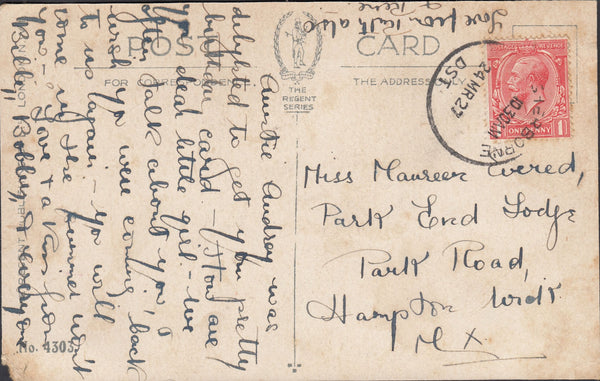 POST CARD
FOR CORRESPONDENCE
THE ADDRESS ONLY
THE
REGENT
SERIES
Love from
Auntie Audrey was
delighted to get your pretty
birthday card - How are
you dear little girl - we
often talk about you &
wish you were coming back
to us again - you will
come in the summer won't
you - Love & a kiss from
Billy, Bobby, & everyone
No. 4303.
SHERBORNE
10.30AM
24 MR 27
DST.
ONE PENNY
1
Miss Maureen
Park End Lodge
Park Road,
Hampton Wick
MX